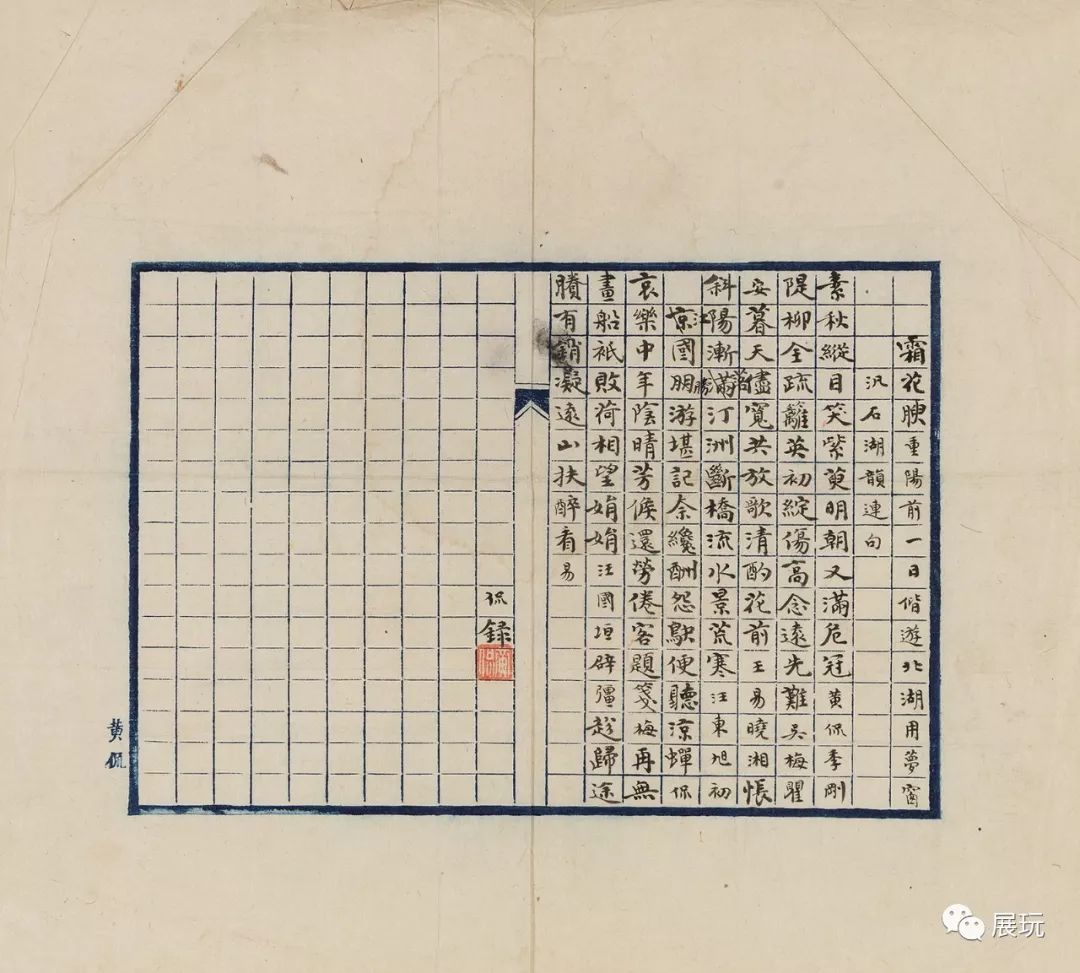 霜花腴重陽前一日偕遊北湖用夢窗
汎石湖韻連句
素秋縱目笑紫萸明朝又滿危冠黃侃季剛
隄柳全疏籬英初綻傷高念遠先難吳梅瞿
安暮天儘寬共放歌清酌花前王易曉湘悵
斜陽漸滿汀洲斷橋流水景荒寒汪東旭初
京國朋游堪記奈纔酬怨鴃便聽涼蟬侃
江
勝
哀樂中年陰晴芳候還勞倦客題箋梅再無
畫船衹敗荷相望娟娟汪國垣辟疆趁歸途
賸有銷凝遠山扶醉看易
侃錄
黃侃
展玩